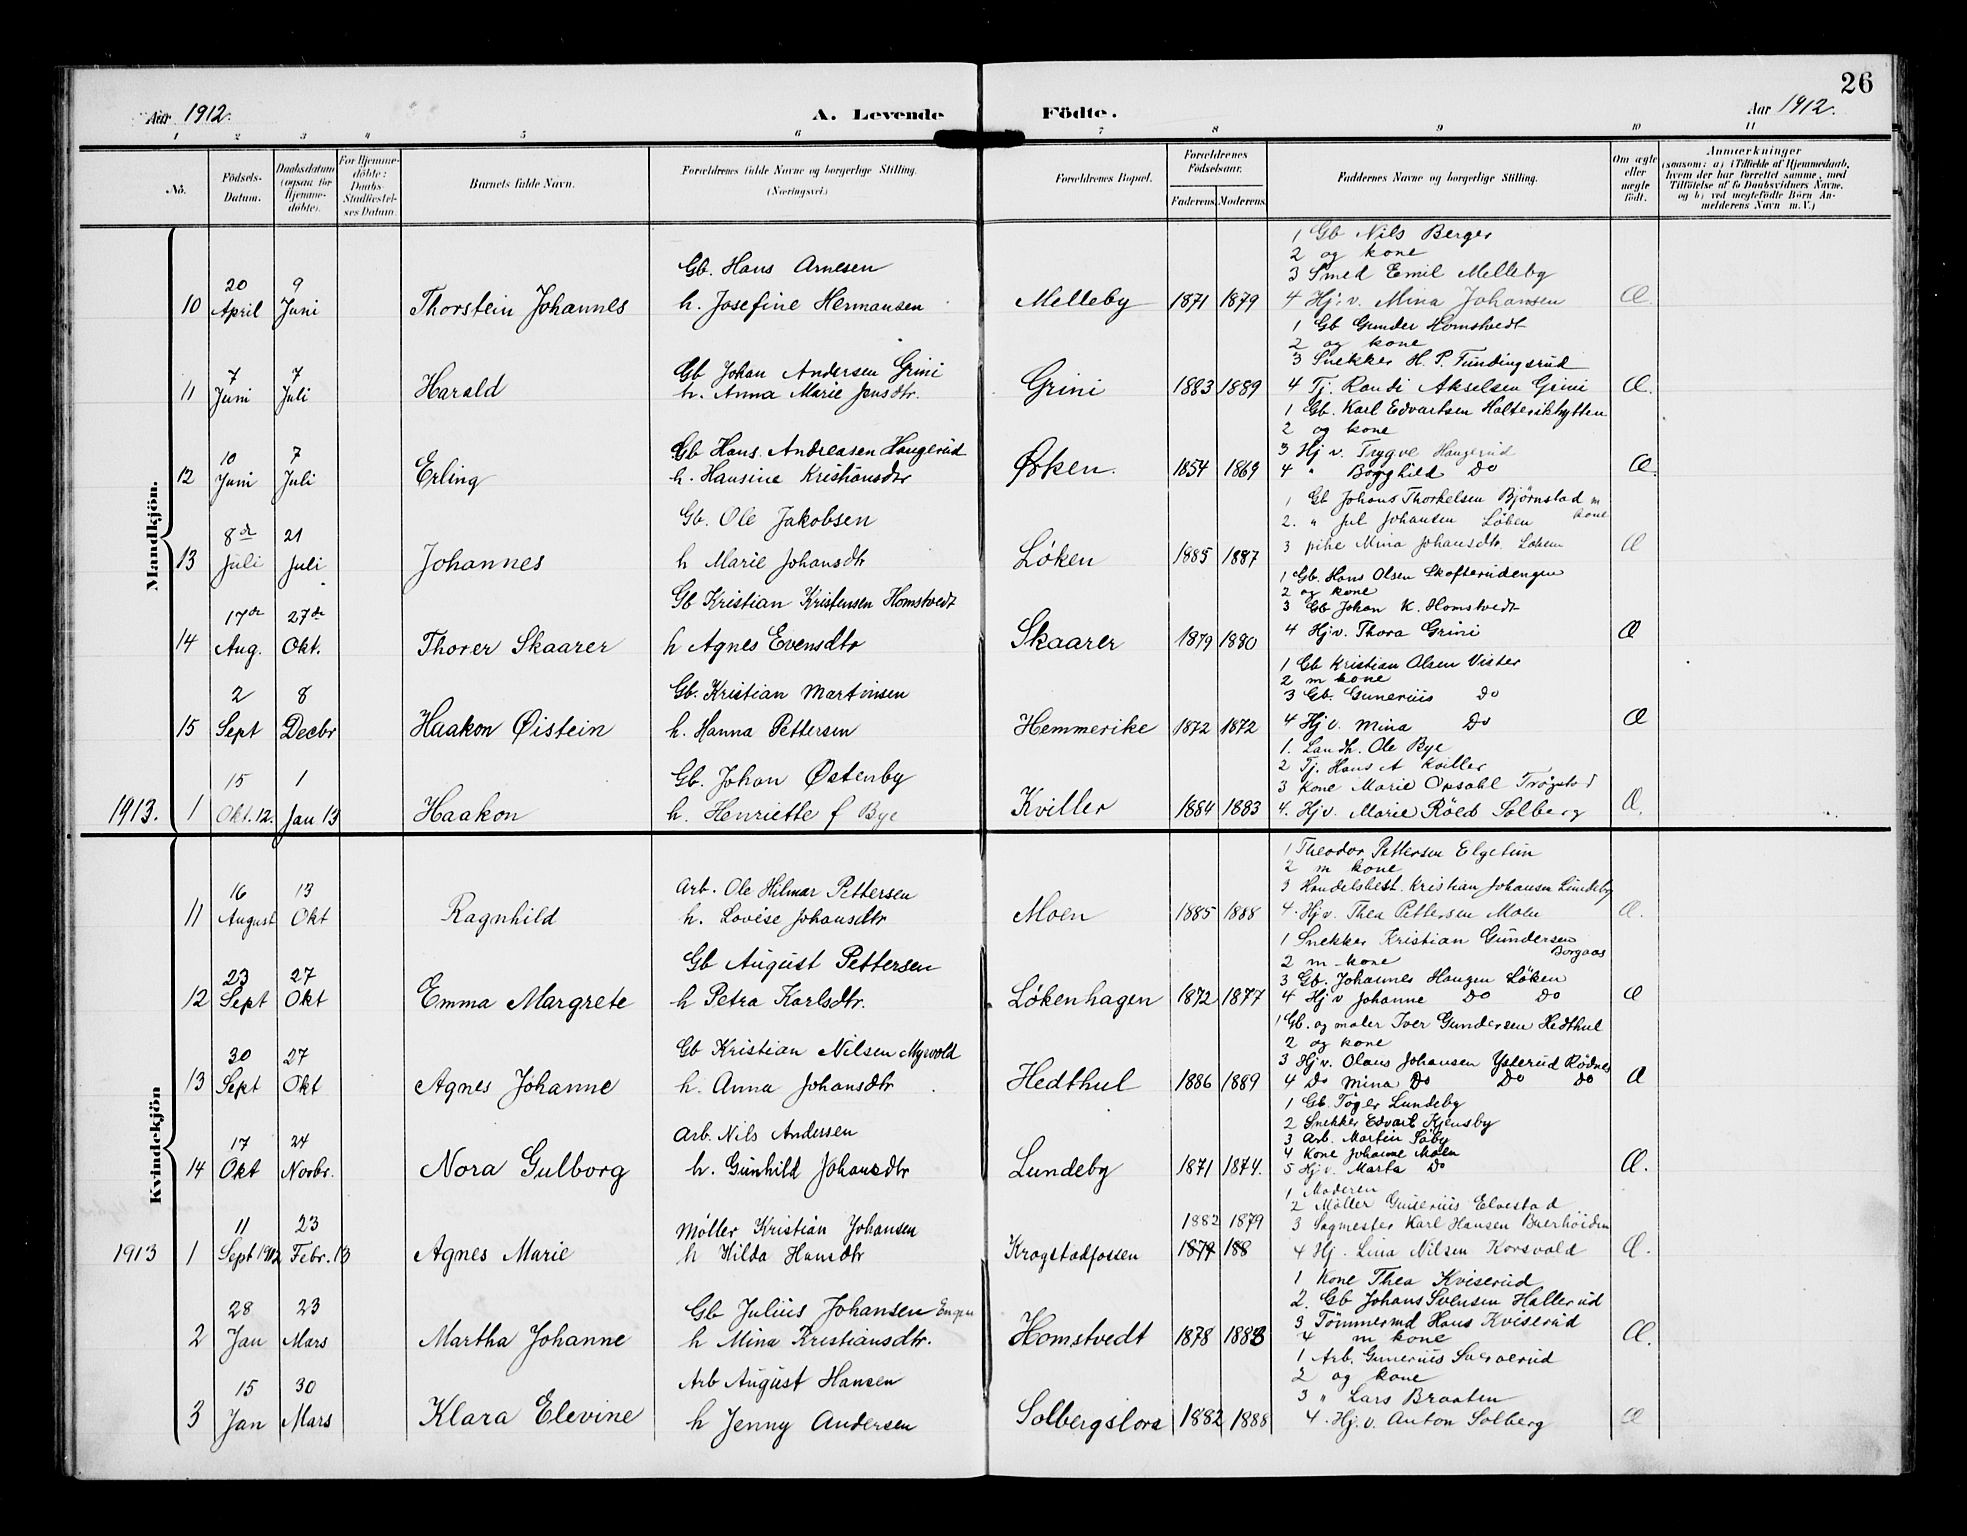 26
Aar 1912.
A. Levende Födte.
Aar 1912.
1 2 3 4 5 6 7 8 9 10 11
No.
Födsels-Datum.
Daabsdatum (ogsaa for Hjemme-döbte).
For Hjemme-döbte: Daabs-Stadfæstel-ses Datum.
Barnets fulde Navn.
Forældrenes fulde Navne og borgerlige Stilling.
(Næringsvei.)
Forældrenes Bopæl.
Forældrenes Födselsaar.
Faderens. Moderens.
Faddernes Navne og borgerlige Stilling.
Om ægte eller uægte födt.
Anmærkninger
(saasom: a) i Tilfælde af Hjemmedaab, hvem der har forrettet samme, med Tilföielse af to Daabsvidners Navne, og b) ved uægtefödte Börn Anmelderens Navn m. V.)
Mandkjön.
10 20 April 9 Juni Thorstein Johannes
Gb. Hans Arnesen
h. Josefine Hermansen
Melleby 1871 1879
1 Gb Nils Berger
2 og kone
3 Smed Emil Melleby
4 Hj. v. Mina Johansen Æ.
11 7 Juni 7 Juli Harald
Gb Johan Andersen Grini
h. Anna Marie Jensdtr.
Grini 1883 1889
1 Gb Gunder Homstvedt
2 og kone
3 Snekker H. P. Tundingsrud
4 Tj. Randi Akselsen Grini Æ.
12 10 Juni 7 Juli Erling
Gb Hans Andreasen Haugerud
h. Hansine Kristiansdtr
Ørken. 1854 1869
1 Gb. Karl Edvartsen
2 og kone
3 Hj v. Trygve Haugerud
4 " Borghild Do Æ.
13 8de Juli 21 Juli Johannes
Gb. Ole Jakobsen
h Marie Johansdtr
Løken 1885 1887
1 Gb Johans Thorkelsen Bjørnstad m kone
2. " Jul Johansen Løken
3 pike Mina Johansdtr. Løken Æ
14 17de Aug. 27de Okt. Thorer Skaarer
Gb Kristian Kristensen Homstvedt
h Agnes Evensdtr
Skaarer 1879 1880
1 Gb. Hans Olsen Skofterudengen
2 og kone
3 Gb Johan K. Homstvedt
4 Hjv. Thora Grini Æ
15 2 Sept 8 Decbr Haakon Øistein
Gb. Kristian Martinsen
h. Hanna Pettersen
Hemmerike 1872 1872
1 Gb Kristian Olsen Vister
2 m kone
3 Gb. Gunerius Do
4 Hj v. Mina Do Æ
1913. 1 15 Okt. 12. 1 Jan 13 Haakon
Gb. Johan Østenby
h. Henriette f Bye
Kviller 1884 1883
1. Landh. Ole Bye
2 Tj. Hans A Kviller
3 Kone Marie Opsahl Trøgstad
4. Hj v. Marie Röed Solberg Æ.
Kvindekjön
11 16 August 13 Okt Ragnhild
Arb. Ole Hilmar Pettersen
h. Lovise Johansdtr
Moen 1885 1888
1 Theodor Pettersen Elgetun
2 m kone
3 Handelsbest. Kristian Johansen Lundeby
4. Hj v. Thea Pettersen Moen Æ.
12 23 Sept 27 Okt Emma Margrete
Gb August Pettersen
h Petra Karlsdtr.
Løkenhagen 1872 1877
1 Snekker Kristian Gundersen Borgaas
2 m kone
3 Gb. Johannes Haugen Løken
4 Hj v Johanne Do Do Æ
13 30 Sept 27 Okt Agnes Johanne
Gb Kristian Nilsen Myrvold
h. Anna Johansdtr
Hedthul 1886 1889
1 Gb. og maler Iver Gundersen Hedthul
2 og kone
3 Hj v. Olaus Johansen Ysterud Rødnes
4 Do Mina Do Do Do Æ
14 17 Okt 24 Novbr. Nora Gulborg
Arb. Nils Andersen
h. Gunhild Johansdtr
Lundeby 1871 1874.
1 Gb. Töger Lundeby
2 Snekker Edvart Kjensby
3 Arb. Martin Säby
4 Kone Johanne Moen
5 Hj v. Marta Do Æ.
1913 1 11 Sept 1912 23 Febr. 13 Agnes Marie
Møller Kristian Johansen
h Hilda Hansdtr
Krogstadfossen 1882 1879
1874 188
1 Moderen
2 Møller Gunerius Elvestad
3 Sagmester Karl Hansen
4 Hj. Lina Nilsen Korsvold Æ.
2 28 Jan 23 Mars Martha Johanne
Gb Julius Johansen Engen
h Mina Kristiansdtr.
Homstvedt 1878 1883
1 Kone Thea Kviserud
2. Gb Johans Svensen Hallerud
3 Tömmermd Hans Kviserud
4 m kone Æ.
3 15 Jan 30 Mars Klara Elevine
Arb August Hansen
h Jenny Andersen
Solbergslora 1882 1888
1 Arb. Gunerius
2 og kone
3 " Lars Braaten
4. Hj. v. Anton Solberg Æ